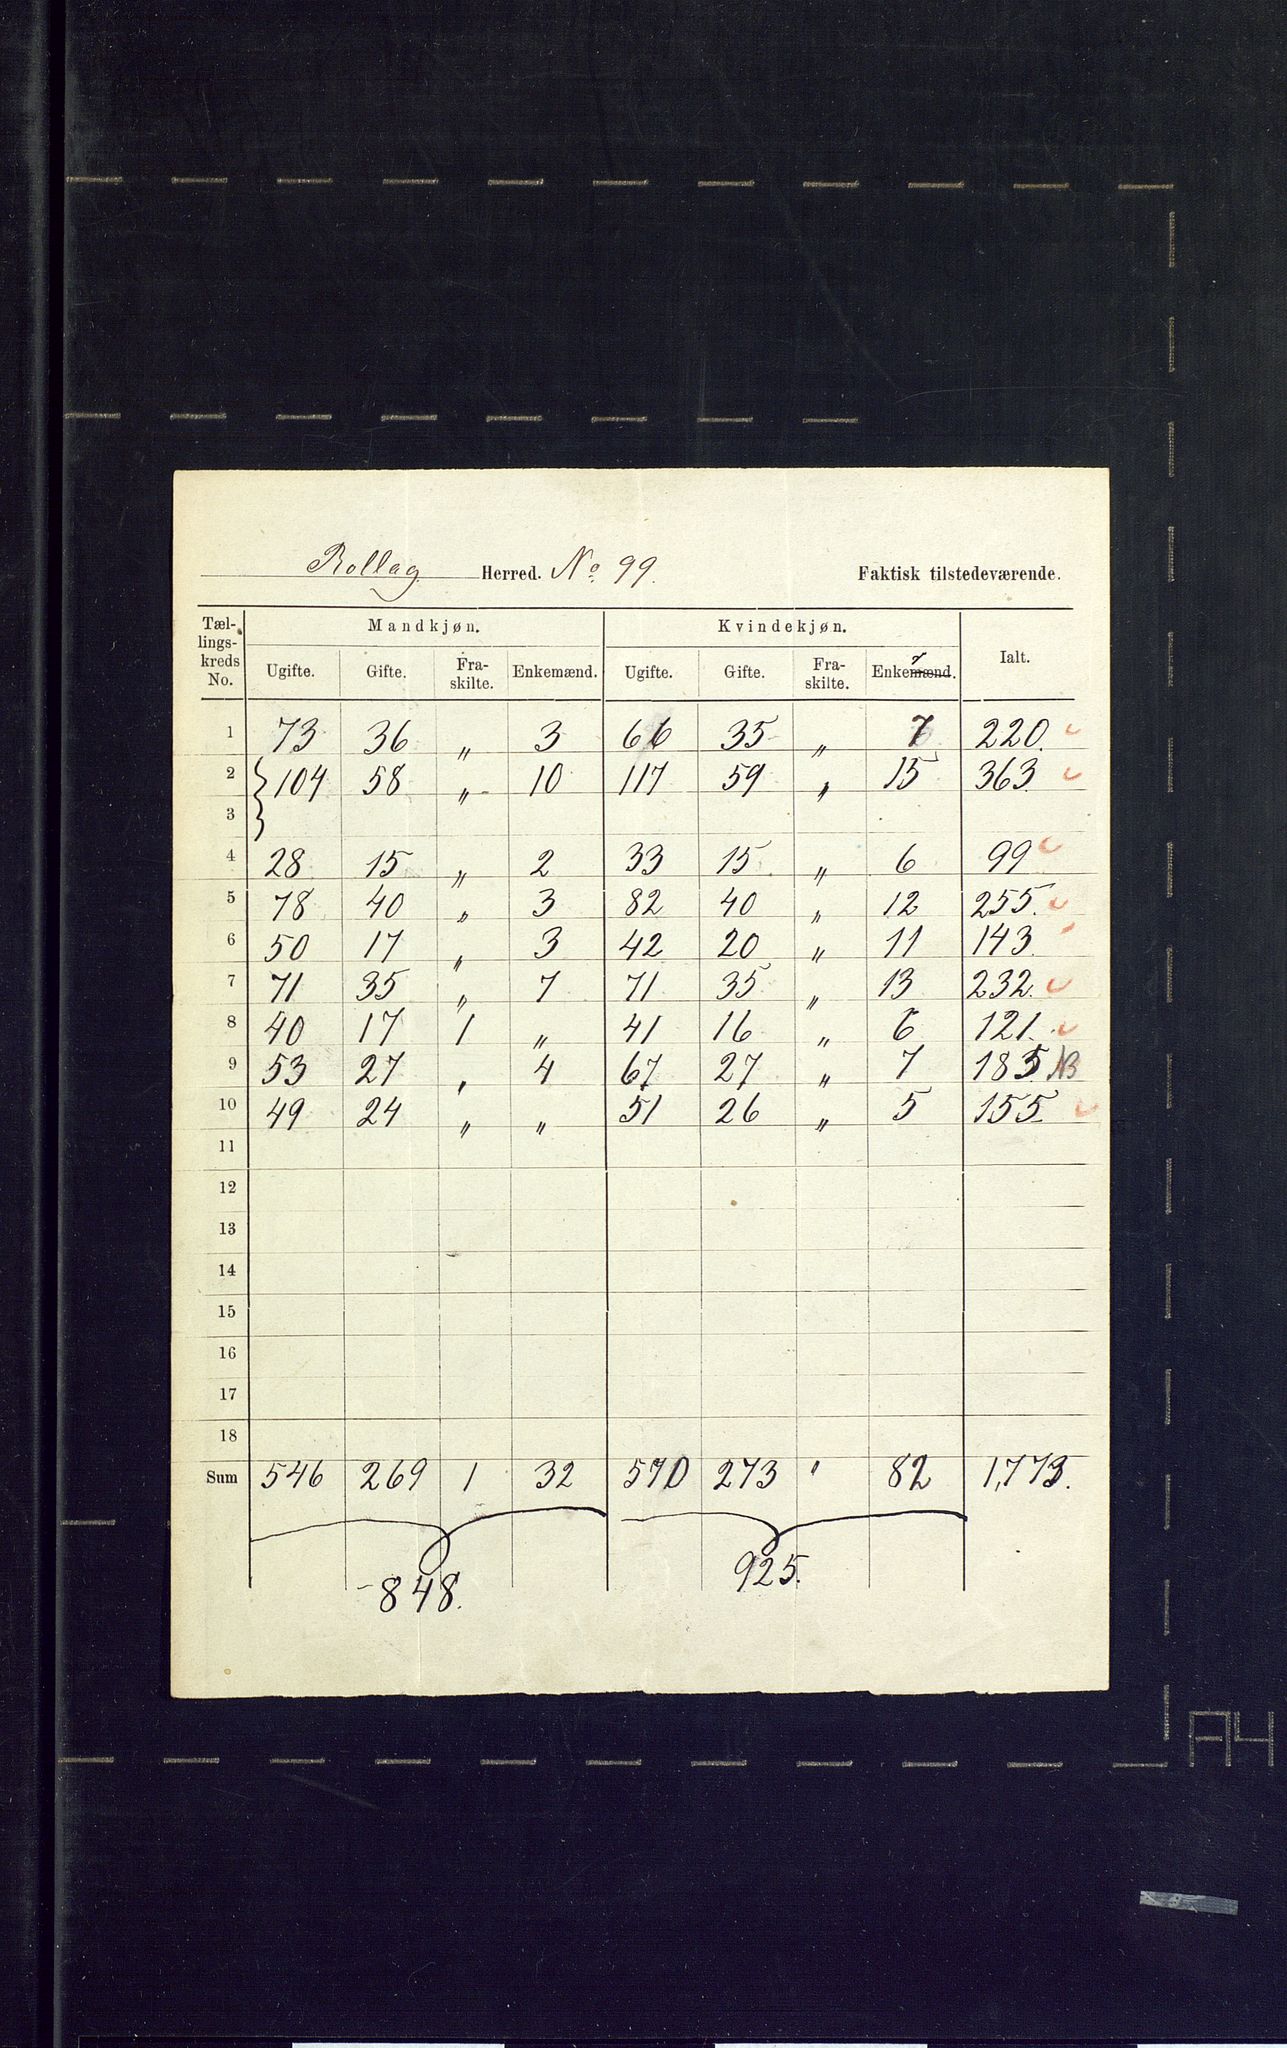 Rollag Herred. No. 99. Faktisk tilstedeværende.
Tællingskreds No. Mandkjøn. Kvindekjøn. Ialt.
Ugifte. Gifte. Fraskilte. Enkemænd. Ugifte. Gifte. Fraskilte. Enkemænd.
1 73 36 „ 3 66 35 „ 7 220.
2 104 58 „ 10 117 59 „ 15 363.
3
4 28 15 „ 2 33 15 „ 6 99
5 78 40 „ 3 82 40 „ 12 255.
6 50 17 „ 3 42 20 „ 11 143.
7 71 35 „ 7 71 35 „ 13 232.
8 40 17 1 „ 41 16 „ 6 121.
9 53 27 „ 4 67 27 „ 7 185 NB
10 49 24 „ „ 51 26 „ 5 155.
11
12
13
14
15
16
17
18
Sum 546 269 1 32 570 273 " 82 1,773.
848. 925.
A4